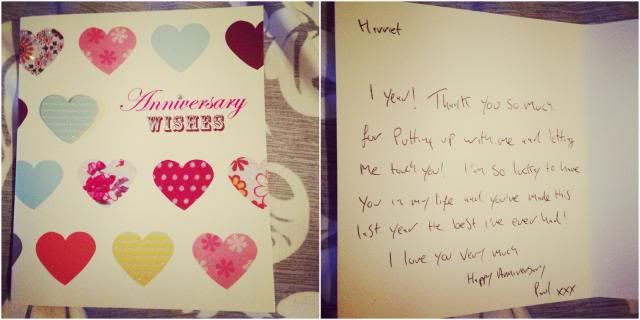 Anniversary
WISHES
Harriet
1 Year! Thank you so much
for Putting up with me and letting
me touch you! I'm so lucky to have
you in my life and you've made this
last year the best i've ever had!
I love you very much
Happy Anniversary
Paul xxx